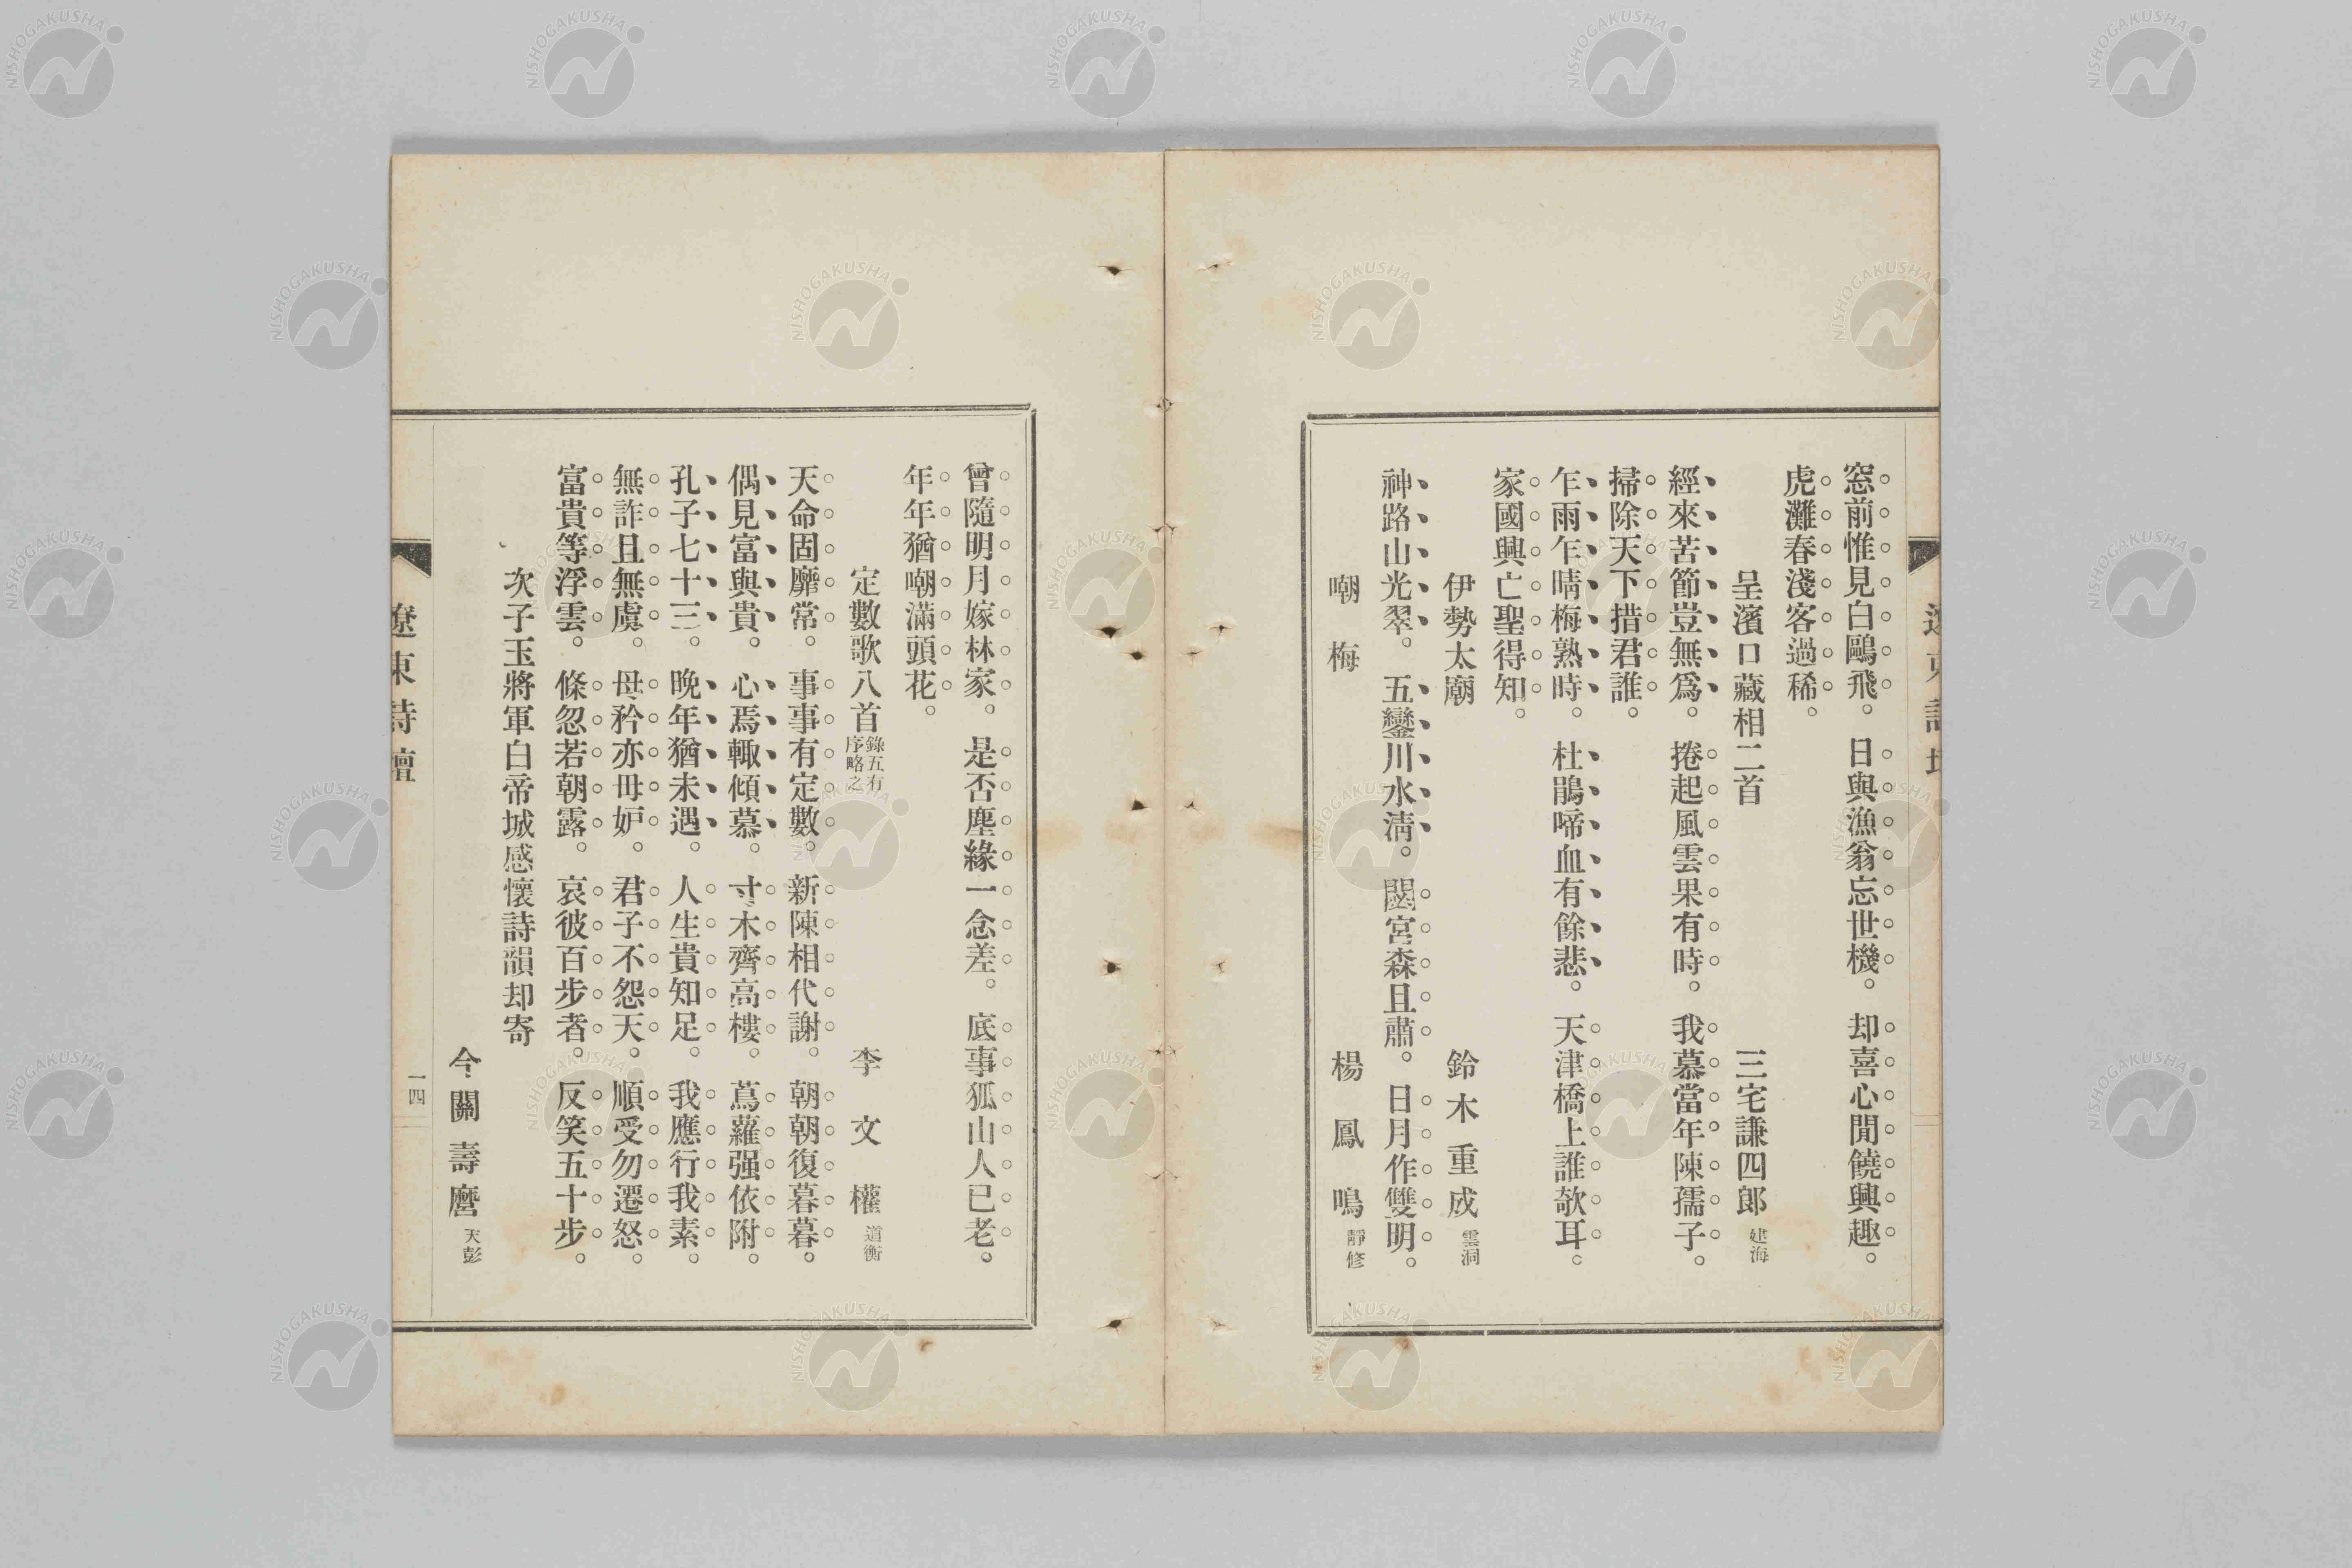 窓前惟見白鷗飛。日與漁翁忘世機。却喜心閒饒興趣。
虎灘春淺客過稀。
呈濱口藏相二首 三宅謙四郎 建海
經來苦節豈無爲。捲起風雲果有時。我慕當年陳孺子。
掃除天下措君誰。
乍雨乍晴梅熟時。杜鵑啼血有餘悲。天津橋上誰欹耳。
家國興亡聖得知。
伊勢太廟 鈴木重成 雲洞
神路山光翠。五鑾川水淸。閟宮森且肅。日月作雙明。
嘲梅 楊鳳鳴 靜修
曾隨明月嫁林家。是否塵緣一念差。底事狐山人已老。
年年猶嘲滿頭花。
定數歌八首 錄五有序略之 李文權 道衡
天命固靡常。事事有定數。新陳相代謝。朝朝復暮暮。
偶見富與貴。心焉輒傾慕。寸木齊高樓。蔦蘿强依附。
孔子七十三。晩年猶未遇。人生貴知足。我應行我素。
無詐且無虞。母矜亦毋妒。君子不怨天。順受勿遷怒。
富貴等浮雲。條忽若朝露。哀彼百步者。反笑五十步。
次子玉將軍白帝城感懷詩韻却寄
今關壽麿 天彭
遼東詩壇
一四
NISHOGAKUSHA